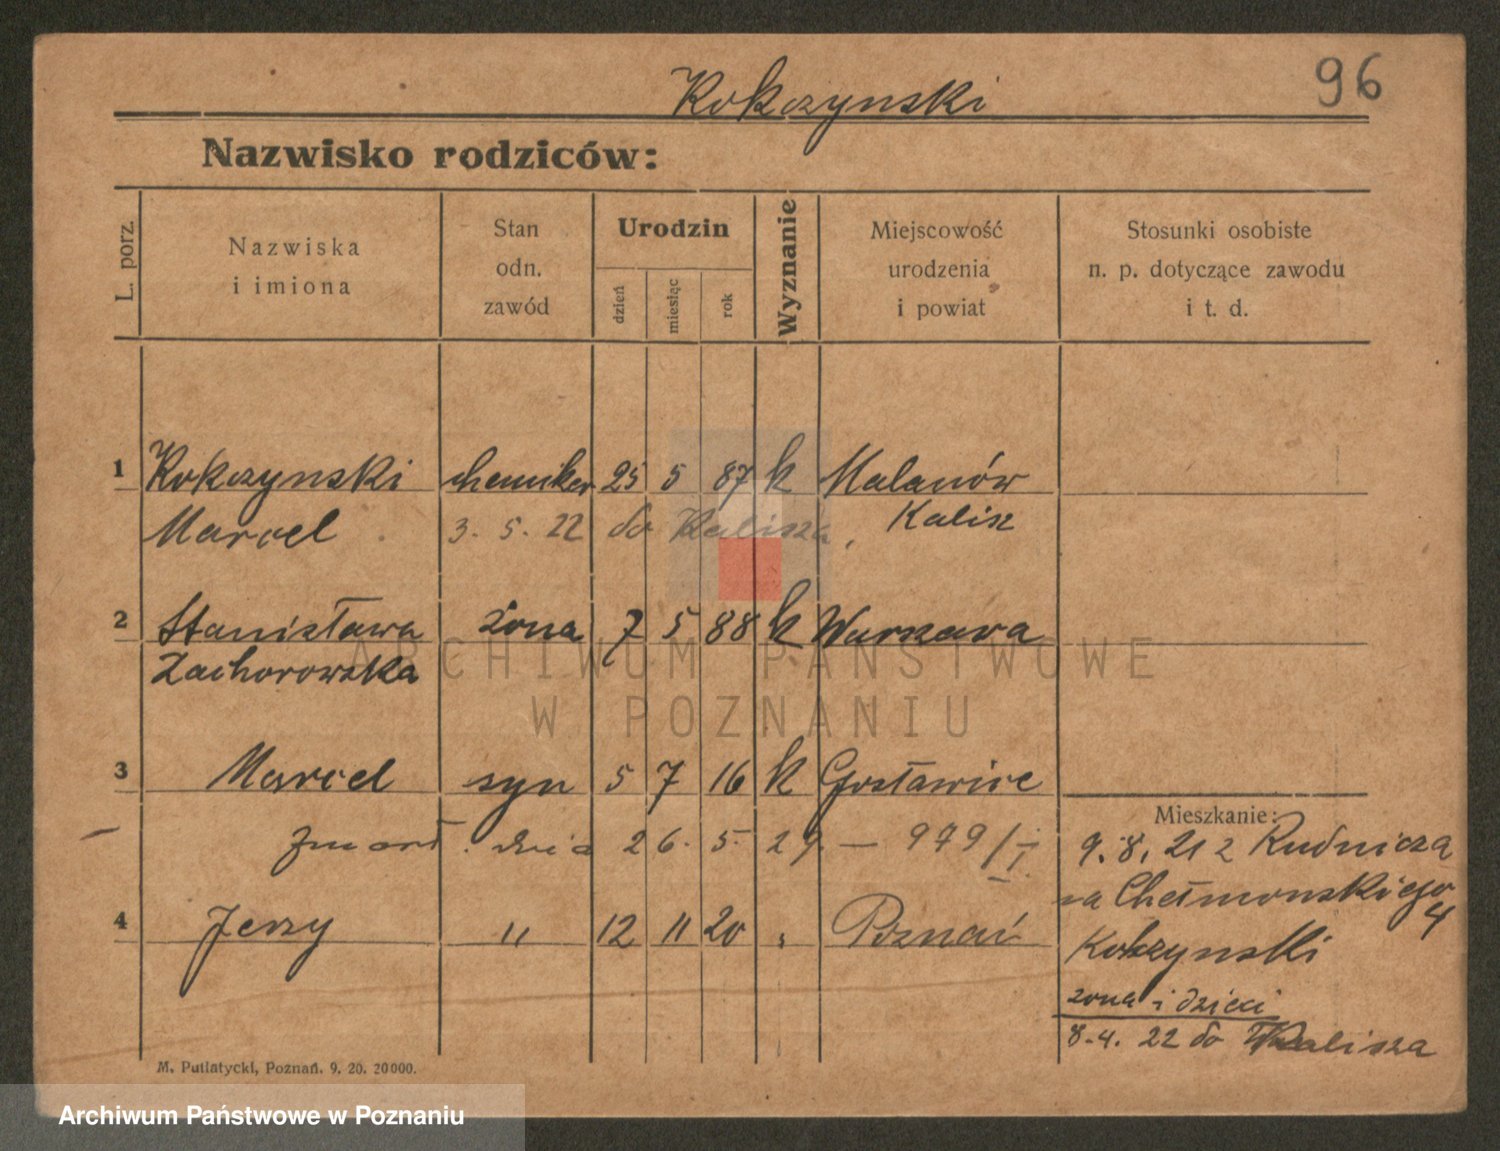 96
Kokczynski
Nazwisko rodziców:
L. porz.
Nazwiska
i imiona
Stan
odn.
zawód
Urodzin
dzień
miesiąc
rok
Wyznanie
Miejscowość
urodzenia
i powiat
Stosunki osobiste
n. p. dotyczące zawodu
i t. d.
1 Kokczynski chemiker 25 5 87 k Malanów
Marcel 3. 5. 22 do Kalisza, Kalisz
2 Stanisława żona 7 5 88 k Warszawa
Zachorowska
ARCHIWUM PAŃSTWOWE
W POZNANIU
3 Marcel syn 5 7 16 k Gosławice
Mieszkanie:
zmarł. dnia 26. 5. 29 — 979/I.
9. 8. 21 z Rudnicza
na Chełmonskiego 4
4 Jerzy " 12 11 20 " Poznań
Kokczynski
zona i dzieci
8-4. 22 do Kalisza
M. Putiatycki, Poznań. 9. 20. 20000.
Archiwum Państwowe w Poznaniu